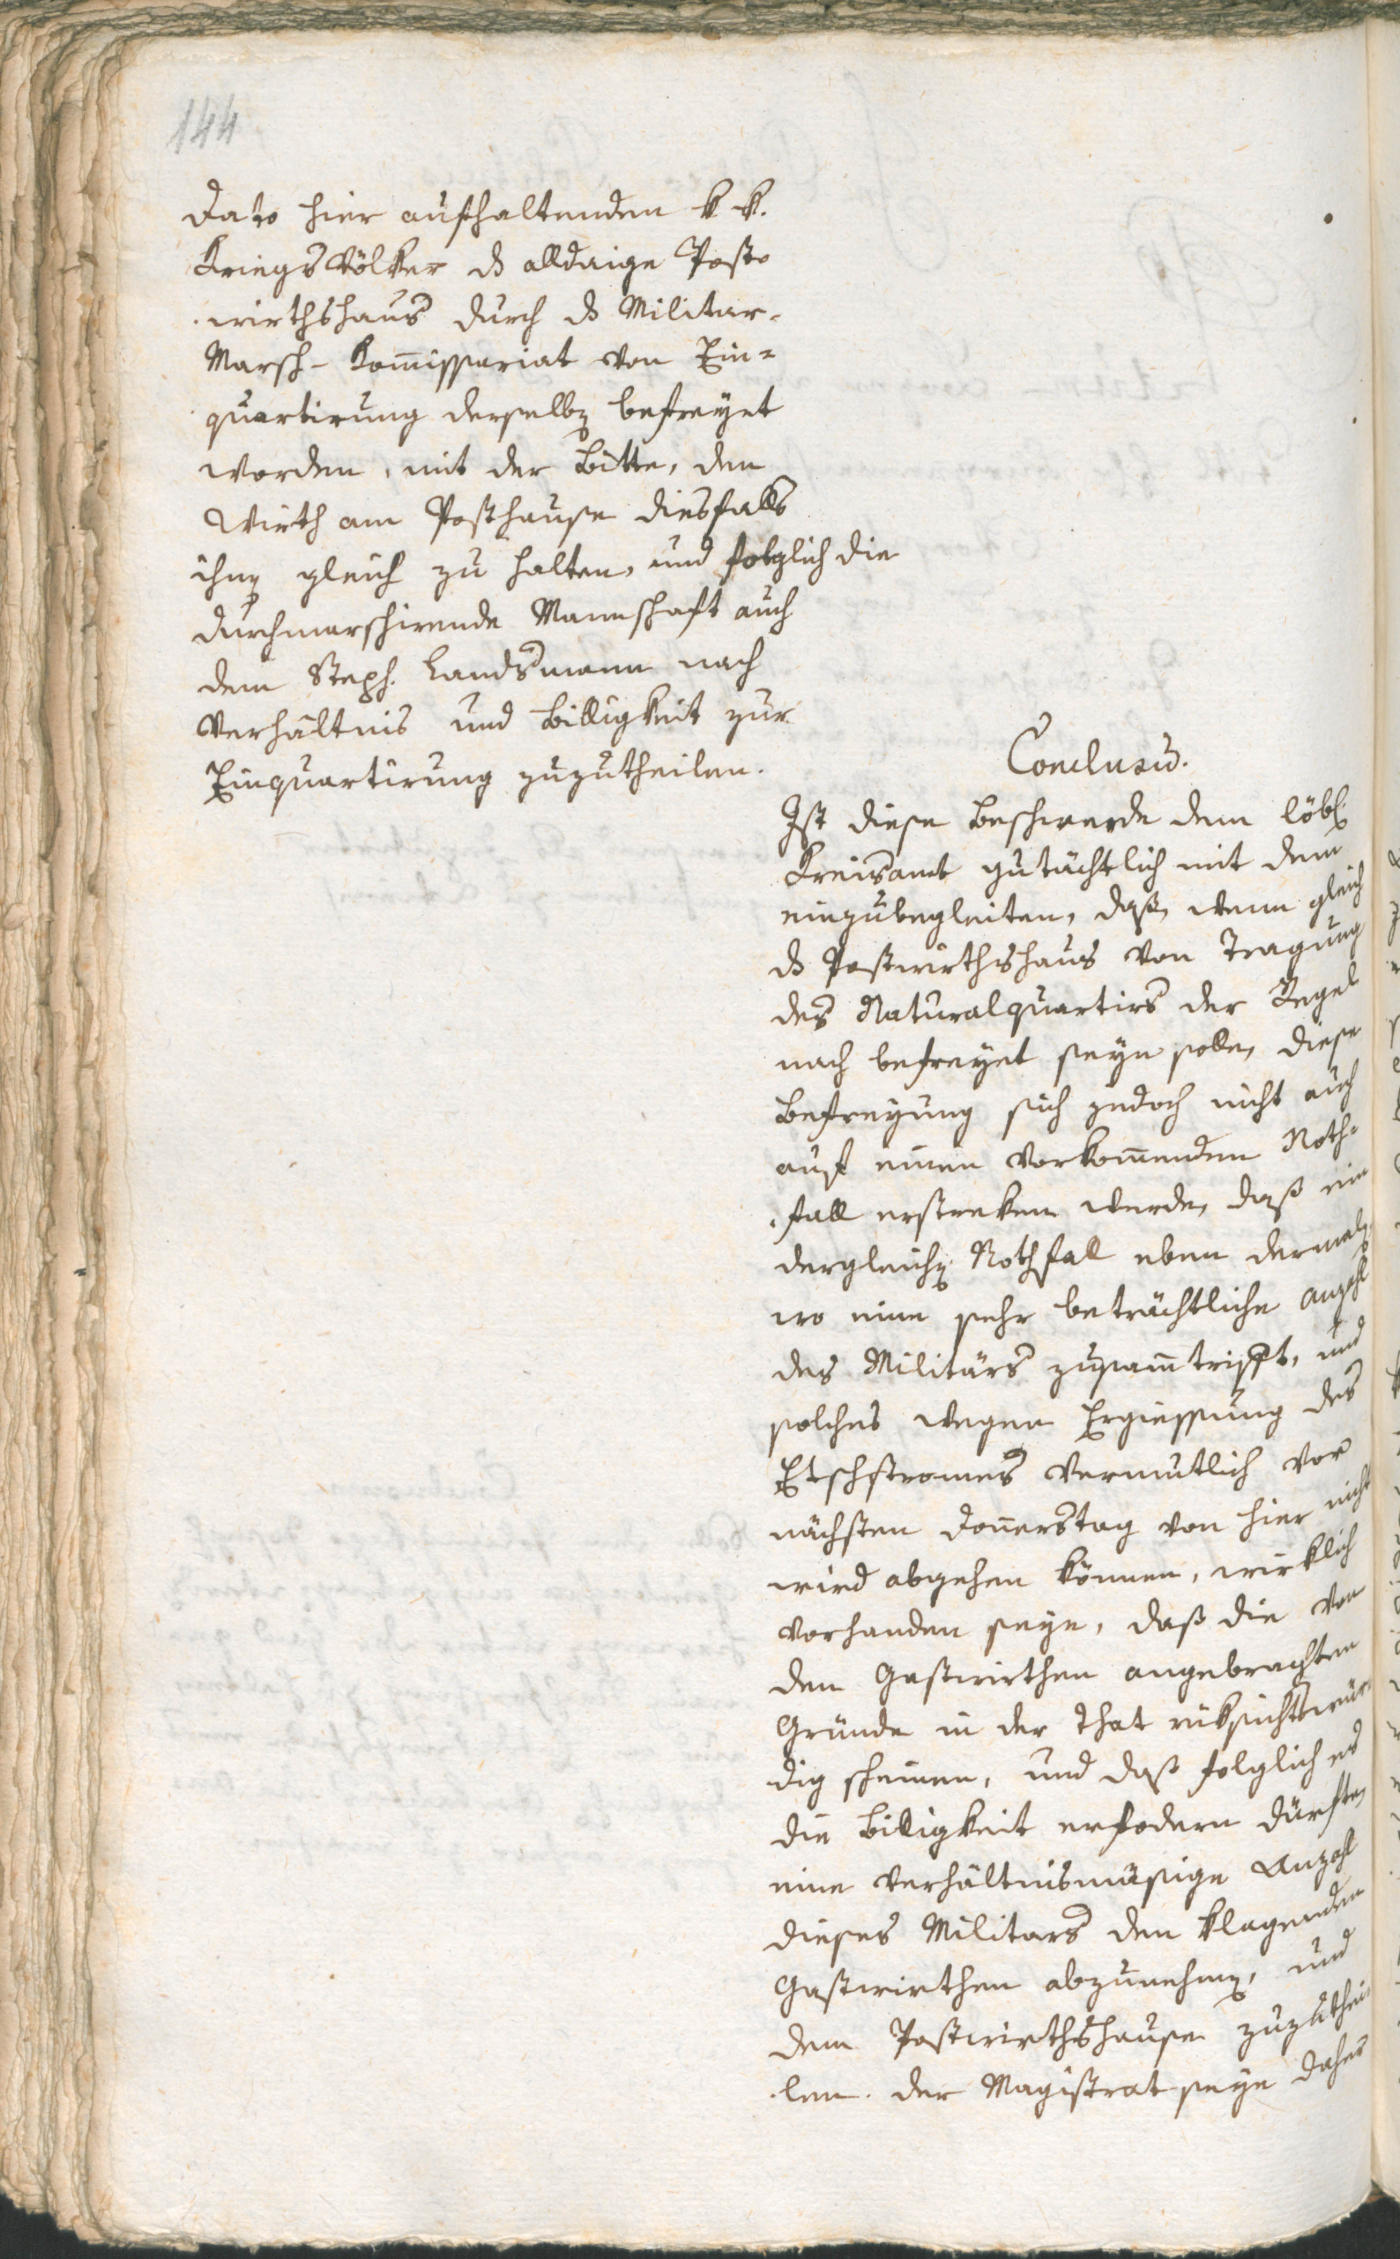 144
Dato hier aufhaltenden k k.
Kriegsvölker ds alldaige Post¬
wirthshaus durch ds Militar¬
Marsch-Kom̅issariat von Ein=
quartirung derselbẽ befreyet
worden, mit der Bitte, den
Wirth am Posthause diesfalls
ihnẽ gleich zu halten, und folglich die
durchmarschirende Mannschaft auch
dem Steph. Landsmann nach
Verhältnis und Billigkeit zur
Einquartirung zuzutheilen.
Conclusũ.
Ist diese Beschwerde dem löbl.
Kreisamt gutächtlich mit dem
einzubegleiten, daß, wenn gleich
ds Postwirthshaus von Tragung
des Naturalquartirs der Regel
nach befreyet seyn solle, diese
Befreyung sich jedoch nicht auch
auf einen vorkom̅enden Noth¬
fall erstreken werde, daß ein
dergleichẽ Nothfall eben dermalẽ,
wo eine sehr beträchtliche Anzahl
des Militärs zusam̅trifft, und
solches wegen Ergiessung des
Etschstromes vermutlich vor
nächsten Don̅erstag von hier nicht
wird abgehen können, wirklich
vorhanden seye, daß die von
den Gastwirthen angebrachten
Gründe in der That rüksichtswür¬
dig scheinen, und daß folglich es
die Billigkeit erfodern dürfte,
eine verhältnismäßige Anzahl
dieses Militars den klagenden
Gastwirthen abzunehmẽ, und
dem Postwirthshause zuzuthei¬
len. Der Magistrat seye daher